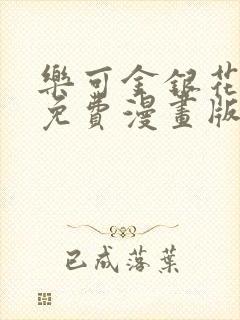 樂可金銀花
免費漫畫版
已成落葉